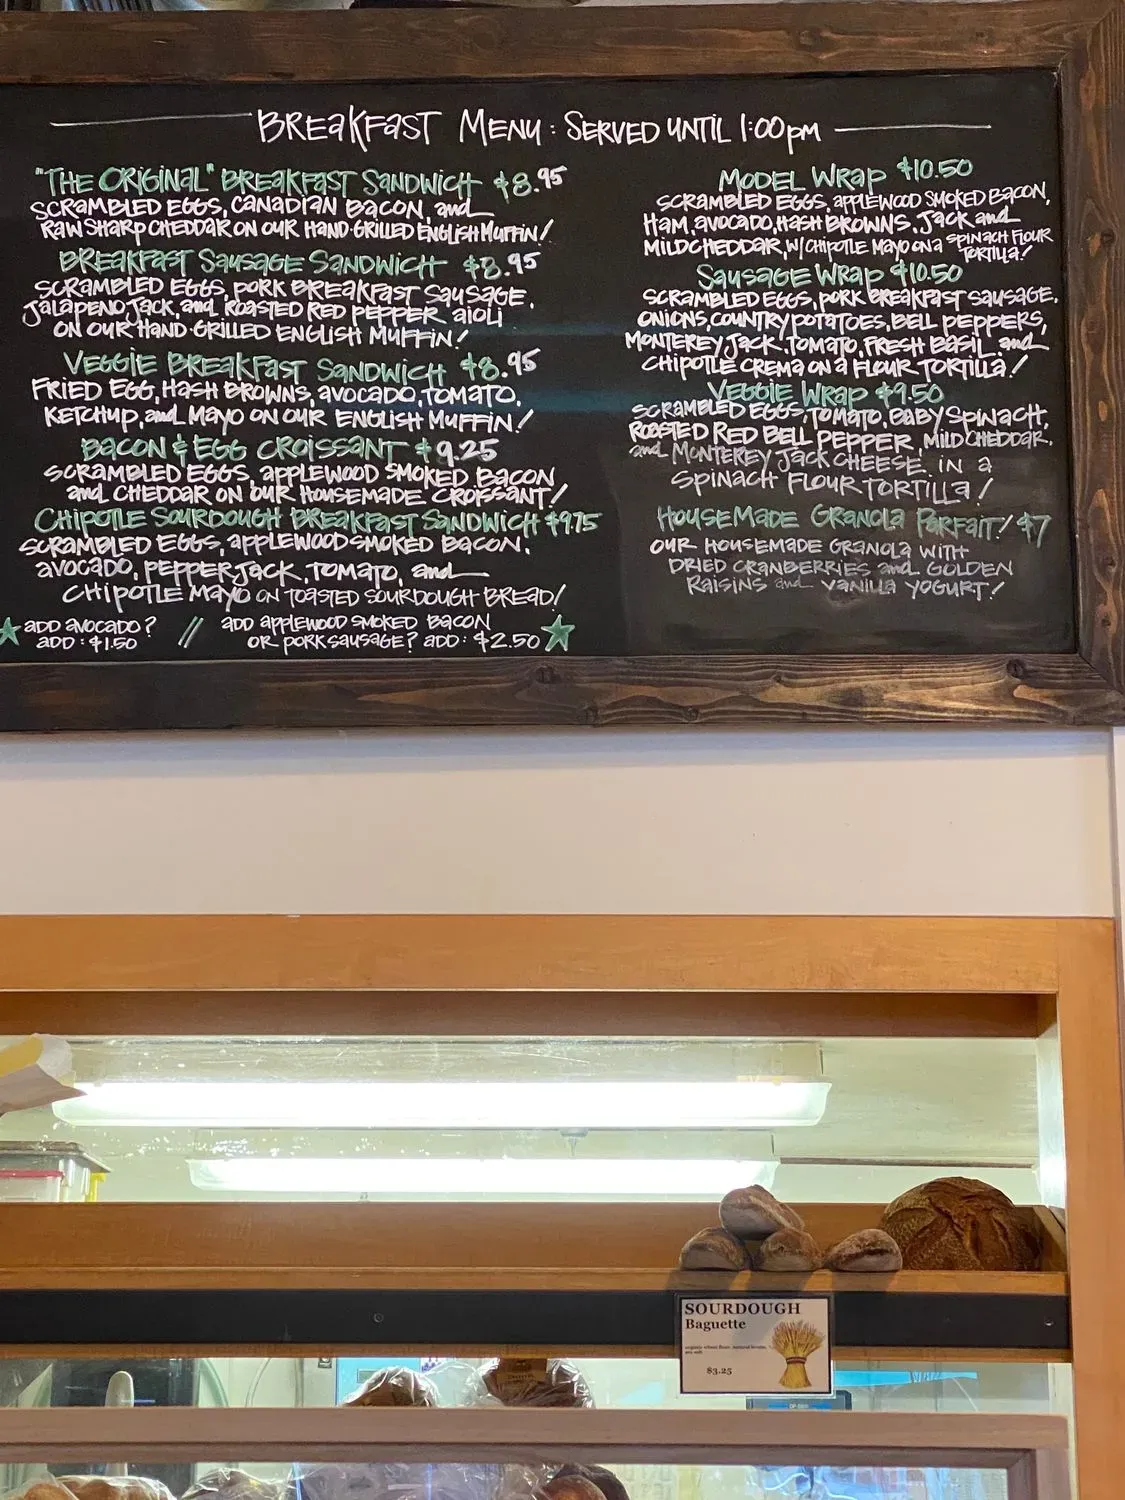 BREAKFAST MENU: SERVED UNTIL 1:00pm
"THE ORIGINAL" BREAKFAST SANDWICH $8.95
SCRAMBLED EGGS, CANADIAN BACON, and
RAW SHARP CHEDDAR ON OUR HAND-GRILLED ENGLISH MUFFIN!
BREAKFAST SAUSAGE SANDWICH $8.95
SCRAMBLED EGGS, PORK BREAKFAST SAUSAGE,
JALAPENO JACK, and ROASTED RED PEPPER AIOLI
ON OUR HAND-GRILLED ENGLISH MUFFIN!
VEGGIE BREAKFAST SANDWICH $8.95
FRIED EGG, HASH BROWNS, AVOCADO, TOMATO,
KETCHUP, and MAYO ON OUR ENGLISH MUFFIN!
BACON & EGG CROISSANT $9.25
SCRAMBLED EGGS, APPLEWOOD SMOKED BACON
and CHEDDAR ON OUR HOUSEMADE CROISSANT!
CHIPOTLE SOURDOUGH BREAKFAST SANDWICH $9.75
SCRAMBLED EGGS, APPLEWOOD SMOKED BACON,
AVOCADO, PEPPER JACK, TOMATO, and
CHIPOTLE MAYO ON TOASTED SOURDOUGH BREAD!
ADD AVOCADO? // ADD APPLEWOOD SMOKED BACON
ADD: $1.50 OR PORK SAUSAGE? ADD: $2.50
MODEL WRAP $10.50
SCRAMBLED EGGS, APPLEWOOD SMOKED BACON,
HAM, AVOCADO, HASH BROWNS, JACK and
MILD CHEDDAR, W/ CHIPOTLE MAYO ON A SPINACH FLOUR
TORTILLA!
SAUSAGE WRAP $10.50
SCRAMBLED EGGS, PORK BREAKFAST SAUSAGE,
ONIONS, COUNTRY POTATOES, BELL PEPPERS,
MONTEREY JACK, TOMATO, FRESH BASIL, and
CHIPOTLE CREMA ON A FLOUR TORTILLA!
VEGGIE WRAP $9.50
SCRAMBLED EGGS, TOMATO, BABY SPINACH,
ROASTED RED BELL PEPPER, MILD CHEDDAR,
and MONTEREY JACK CHEESE IN A
SPINACH FLOUR TORTILLA!
HOUSEMADE GRANOLA PARFAIT! $7
OUR HOUSEMADE GRANOLA WITH
DRIED CRANBERRIES and GOLDEN
RAISINS and VANILLA YOGURT!
SOURDOUGH
Baguette
$3.25